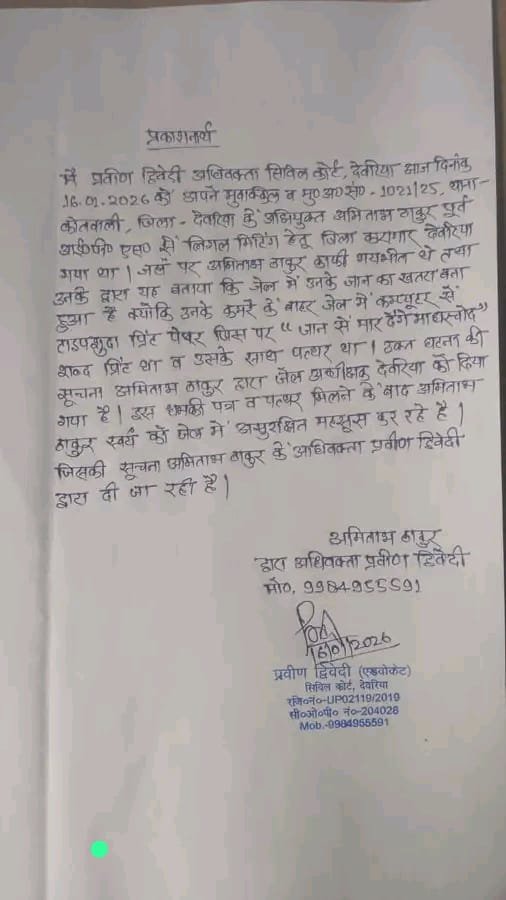 प्रकाशनार्थ
मैं प्रवीण द्विवेदी अधिवक्ता सिविल कोर्ट, देवरिया आज दिनांक
16.01.2026 को अपने मुवक्किल व मु०अ०सं० - 1021/25, थाना-
कोतवाली, जिला - देवरिया के अभियुक्त अमिताभ ठाकुर पूर्व
आई०पी० एस० से लिगल मिटिंग हेतु जिला कारागार देवरिया
गया था। जहाँ पर अमिताभ ठाकुर काफी भयभीत थे तथा
उनके द्वारा यह बताया कि जेल में उनके जान का खतरा बना
हुआ है क्योंकि उनके कमरे के बाहर जेल में कम्प्यूटर से
टाइपशुदा प्रिंट पेपर जिस पर "जान से मार देंगे
शब्द प्रिंट था व उसके साथ पत्थर था। उक्त घटना की
सूचना अमिताभ ठाकुर द्वारा जेल अधीक्षक देवरिया को दिया
गया है। इस धमकी पत्र व पत्थर मिलने के बाद अमिताभ
ठाकुर स्वयं को जेल में असुरक्षित महसूस कर रहे है।
जिसकी सूचना अमिताभ ठाकुर के अधिवक्ता प्रवीण द्विवेदी
द्वारा दी जा रही है।
अमिताभ ठाकुर
द्वारा अधिवक्ता प्रवीण द्विवेदी
मो०. 9984955591
16/01/2026
प्रवीण द्विवेदी (एडवोकेट)
सिविल कोर्ट, देवरिया
रजि०नं०-UP02119/2019
सी०ओ०पी० नं०-204028
Mob.-9984955591